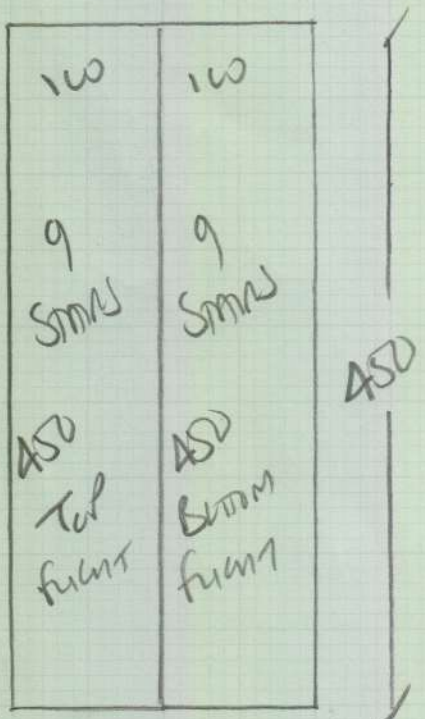 100
9
STAIRS
450
TOP
FLIGHT
100
9
STAIRS
450
BOTTOM
FLIGHT
450